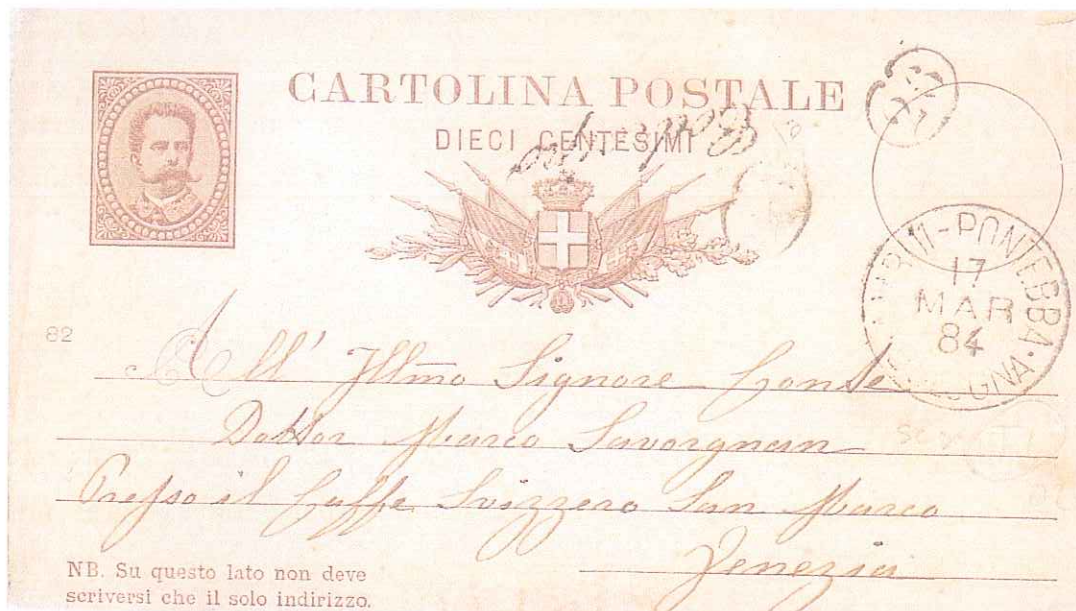 CARTOLINA POSTALE
DIECI CENTESIMI
PONTEBBA
17
MAR
84
82
All' Illmo Signore Conte
Dottor Marco Savorgnan
Presso il Caffe Svizzero San Marco
Venezia
NB. Su questo lato non deve
scriversi che il solo indirizzo.